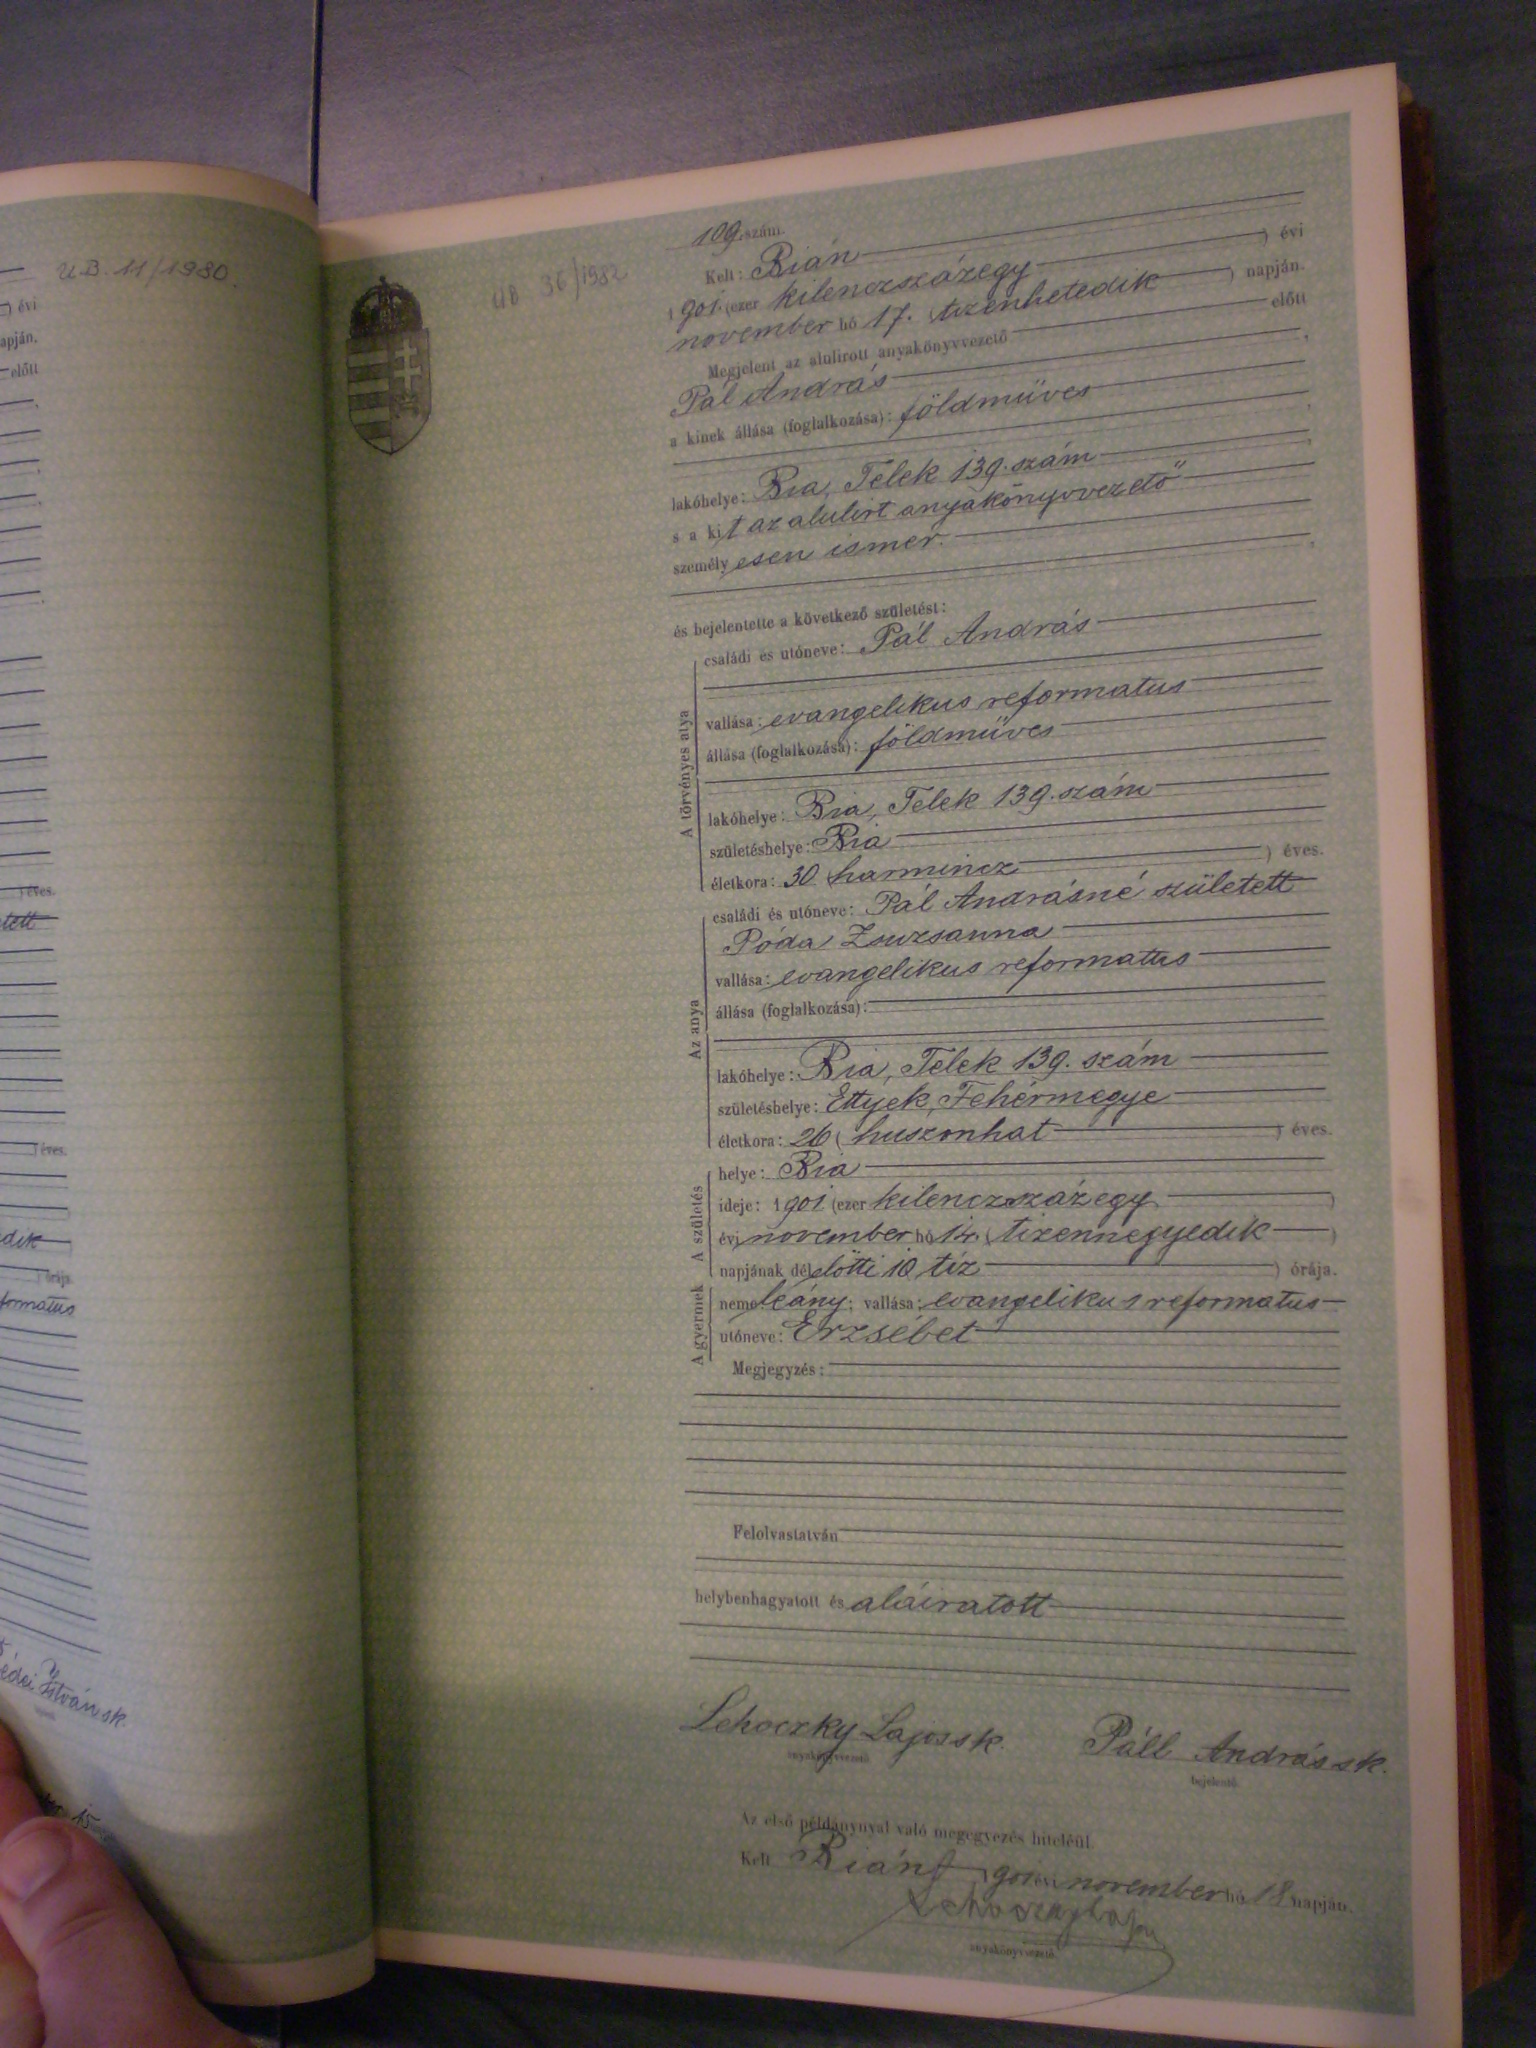 U.B. 11/1980.
évi
apján.
előtt
) éves.
tett
) éves.
dik
) órája.
formatus
István sk.
15
UB 36/1982
109. szám.
Kelt: Bián ) évi
1901. (ezer kilenczszázegy ) napján.
november hó 17. tizenhetedik
Megjelent az alulirott anyakönyvvezető előtt
Pál András ,
a kinek állása (foglalkozása): földmüves
,
lakóhelye: Bia, Telek 139. szám ,
s a kit az alulirt anyakönyvvezető
személyesen ismer. ,
és bejelentette a következő születést:
A törvényes atya
családi és utóneve: Pál András
vallása: evangelikus reformatus
állása (foglalkozása): földmüves
lakóhelye: Bia, Telek 139. szám
születéshelye: Bia
életkora: 30 (harmincz ) éves.
Az anya
családi és utóneve: Pál Andrásné született
Póda Zsuzsanna
vallása: evangelikus reformatus
állása (foglalkozása):
lakóhelye: Bia, Telek 139. szám
születéshelye: Ettyek, Fehérmegye
életkora: 26 (huszonhat ) éves.
A születés
helye: Bia
ideje: 1901 (ezer kilenczszázegy )
évi november hó 14. (tizennegyedik )
napjának délelőtti 10 tíz ) órája.
A gyermek
neme leány; vallása: evangelikus reformatus
utóneve: Erzsébet
Megjegyzés:
Felolvastatván
helybenhagyatott és aláiratott
Lehoczky Lajos sk. Páll András sk.
anyakönyvvezető bejelentő.
Az első példánynyal való megegyezés hiteléül.
Kelt Bián, 1901 évi november hó 18 napján.
Lehoczky Lajos
anyakönyvvezető.